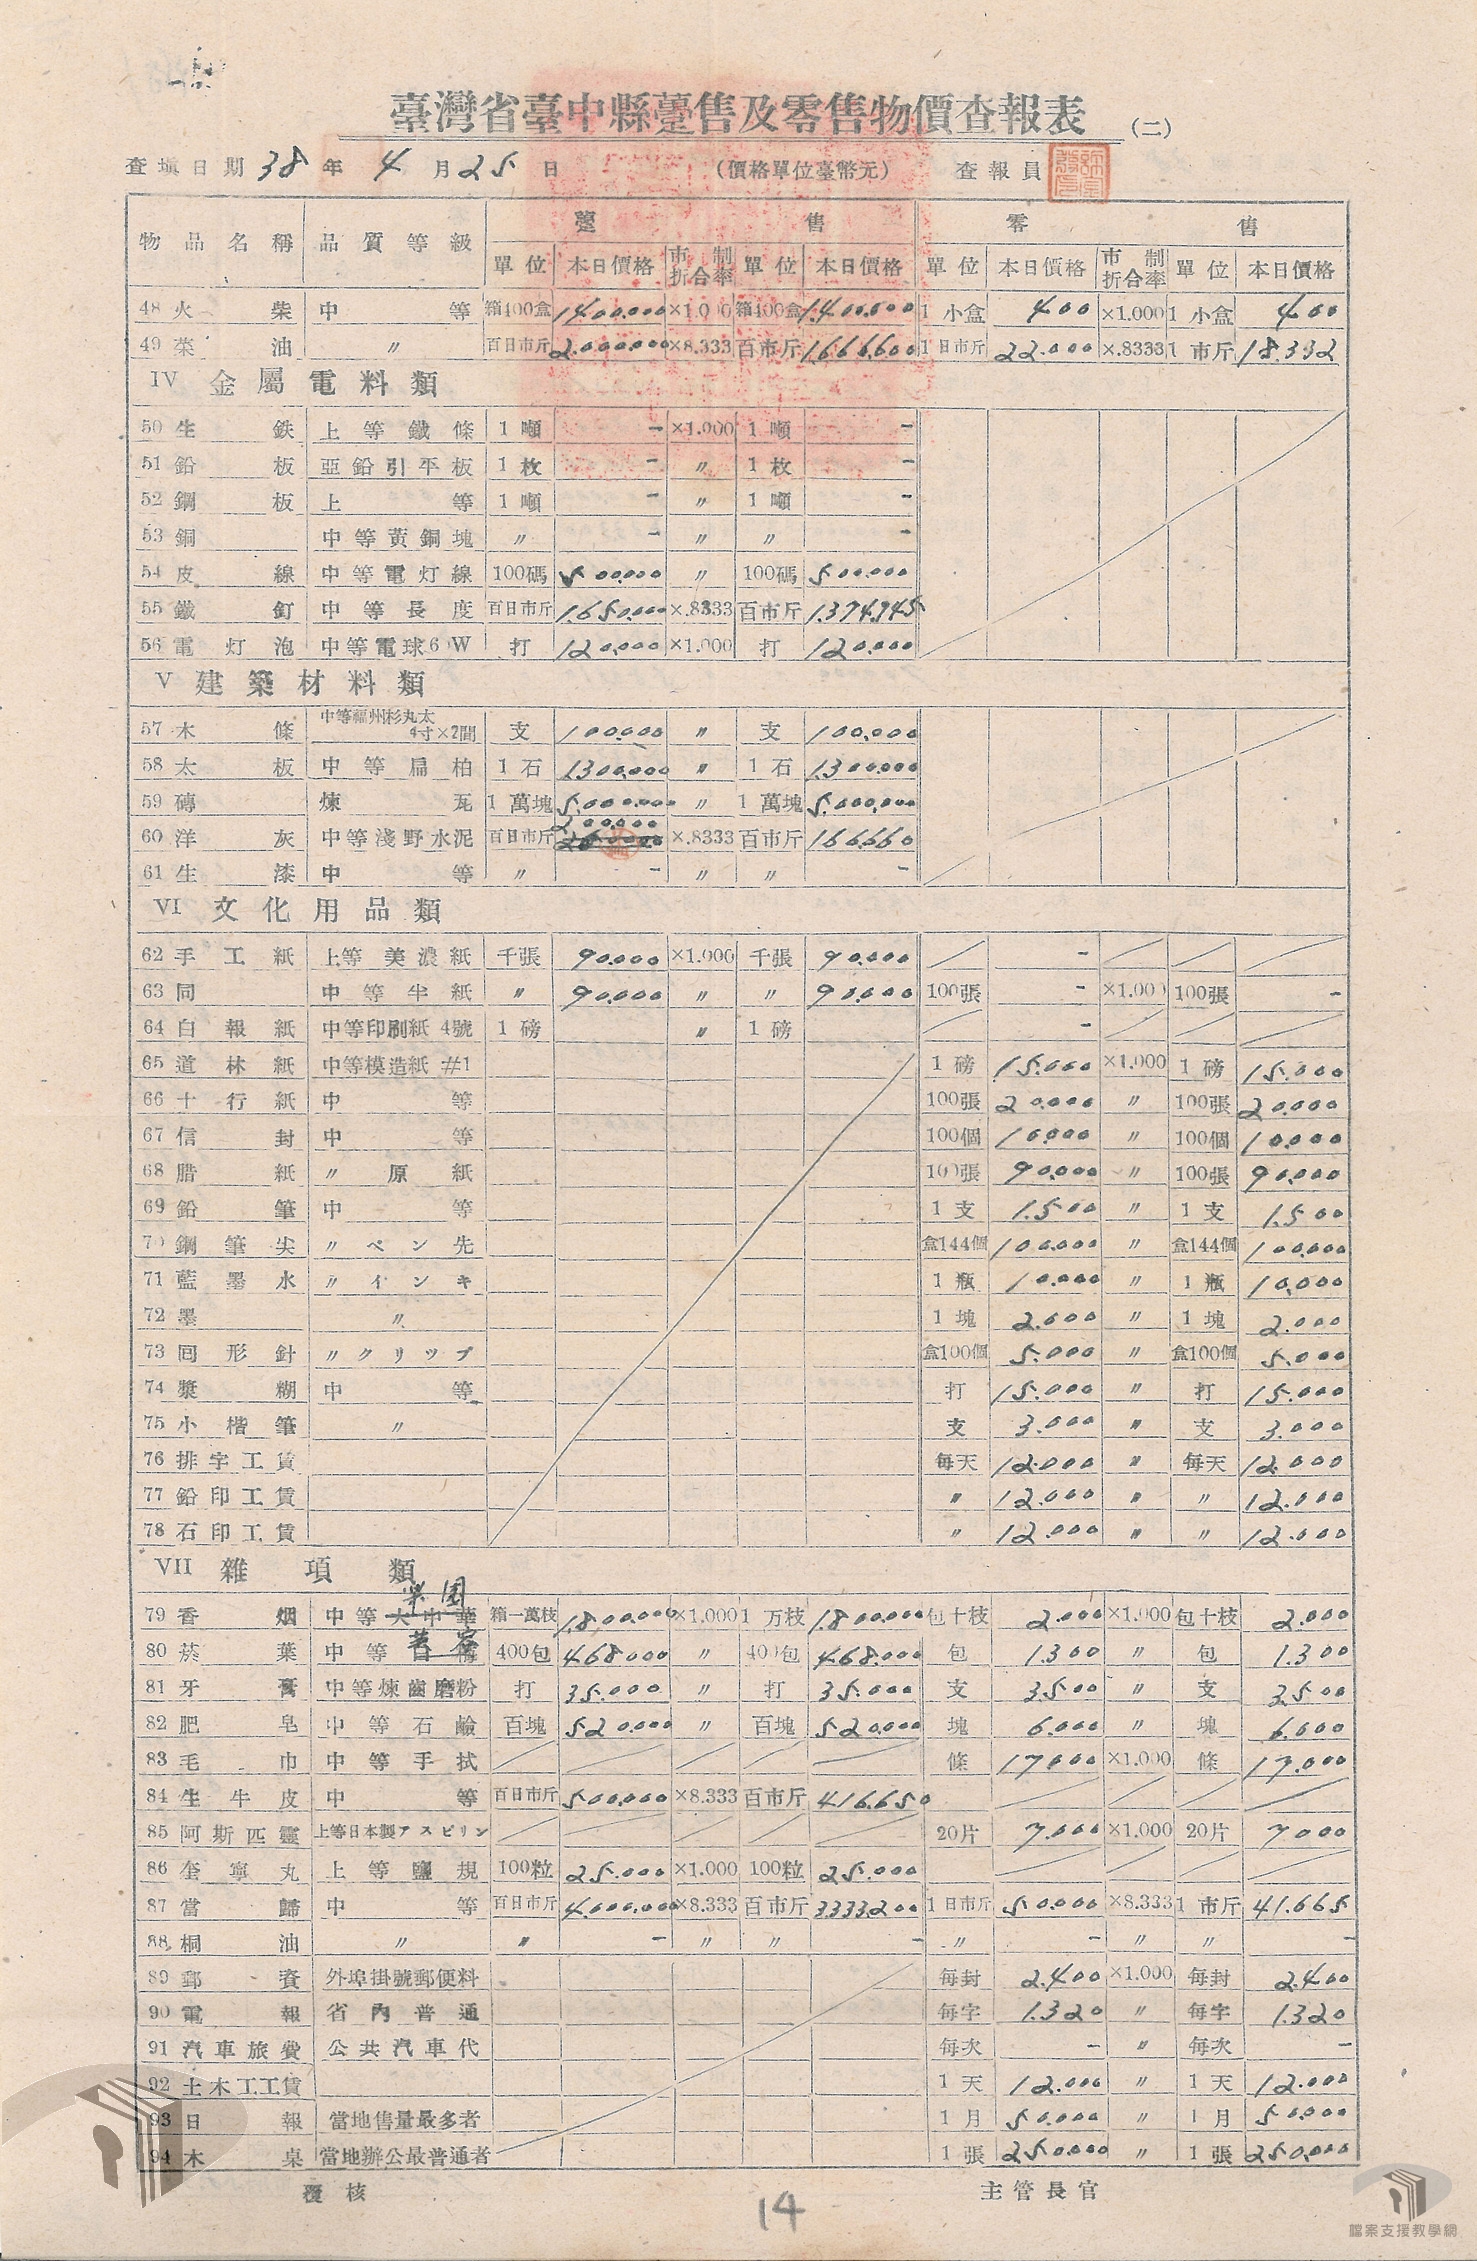 臺灣省臺中縣躉售及零售物價查報表 (二)
查填日期 38 年 4 月 25 日 (價格單位臺幣元) 查報員
物品名稱 品質等級 躉售 零售
單位 本日價格 市制折合率 單位 本日價格 單位 本日價格 市制折合率 單位 本日價格
48 火柴 中等 箱400盒 1400.000 ×1.000 箱400盒 1.400.000 1 小盒 400 ×1.000 1 小盒 400
49 菜油 〃 百日市斤 2.000.000 ×8.333 百市斤 1.666.600 1 日市斤 22.000 ×.8333 1 市斤 18.332
IV 金屬電料類
50 生鉄 上等鐵條 1 噸 - ×1.000 1 噸 -
51 鉛板 亞鉛引平板 1 枚 - 〃 1 枚 -
52 鋼板 上等 1 噸 - 〃 1 噸 -
53 銅 中等黃銅塊 〃 - 〃 〃 -
54 皮線 中等電灯線 100碼 500.000 〃 100碼 500.000
55 鐵釘 中等長度 百日市斤 1.650.000 ×.8333 百市斤 1.374.945
56 電灯泡 中等電球60W 打 120.000 ×1.000 打 120.000
V 建築材料類
57 木條 中等福州杉丸太 4寸×2間 支 100.000 〃 支 100.000
58 太板 中等扁柏 1 石 1300.000 〃 1 石 1.300.000
59 磚 煉瓦 1 萬塊 5.000.000 〃 1 萬塊 5.000.000
60 洋灰 中等淺野水泥 百日市斤 200.000 ×.8333 百市斤 166.660
61 生漆 中等 〃 - 〃 〃 -
VI 文化用品類
62 手工紙 上等美濃紙 千張 90.000 ×1.000 千張 90.000 -
63 同 中等半紙 〃 90.000 〃 〃 90.000 100張 - ×1.000 100張 -
64 白報紙 中等印刷紙 4號 1 磅 〃 1 磅 -
65 道林紙 中等模造紙 #1 1 磅 15.000 ×1.000 1 磅 15.000
66 十行紙 中等 100張 20.000 〃 100張 20.000
67 信封 中等 100個 10.000 〃 100個 10.000
68 腊紙 〃原紙 100張 90.000 〃 100張 90.000
69 鉛筆 中等 1 支 1.500 〃 1 支 1.500
70 鋼筆尖 〃ペン先 盒144個 100.000 〃 盒144個 100.000
71 藍墨水 〃インキ 1 瓶 10.000 〃 1 瓶 10.000
72 墨 〃 1 塊 2.000 〃 1 塊 2.000
73 回形針 〃クリップ 盒100個 5.000 〃 盒100個 5.000
74 漿糊 中等 打 15.000 〃 打 15.000
75 小楷筆 〃 支 3.000 〃 支 3.000
76 排字工賃 每天 12.000 〃 每天 12.000
77 鉛印工賃 〃 12.000 〃 〃 12.000
78 石印工賃 〃 12.000 〃 〃 12.000
VII 雜項類
樂園
79 香烟 中等大中華 箱一萬枝 1.800.000 ×1.000 1 万枝 1.800.000 包十枝 2.000 ×1.000 包十枝 2.000
80 菸葉 中等 400包 468.000 〃 400包 468.000 包 1.300 〃 包 1.300
81 牙膏 中等煉齒磨粉 打 35.000 〃 打 35.000 支 3500 〃 支 3500
82 肥皂 中等石鹼 百塊 520.000 〃 百塊 520.000 塊 6.000 〃 塊 6.000
83 毛巾 中等手拭 條 17.000 ×1.000 條 17.000
84 生牛皮 中等 百日市斤 500.000 ×8.333 百市斤 416.650
85 阿斯匹靈 上等日本製アスピリン 20片 7.000 ×1.000 20片 7000
86 奎寧丸 上等鹽規 100粒 25.000 ×1.000 100粒 25.000
87 當歸 中等 百日市斤 4.000.000 ×8.333 百市斤 3333200 1 日市斤 50.000 ×8.333 1 市斤 41.665
88 桐油 〃 〃 - 〃 〃 - 〃 - 〃 〃 -
89 郵資 外埠掛號郵便料 每封 2.400 ×1.000 每封 2.400
90 電報 省內普通 每字 1.320 〃 每字 1.320
91 汽車旅費 公共汽車代 每次 - 〃 每次 -
92 土木工工賃 1 天 12.000 〃 1 天 12.000
93 日報 當地售量最多者 1 月 50.000 〃 1 月 50.000
94 木桌 當地辦公最普通者 1 張 250.000 〃 1 張 250.000
覆核 主管長官
14
檔案支援教學網